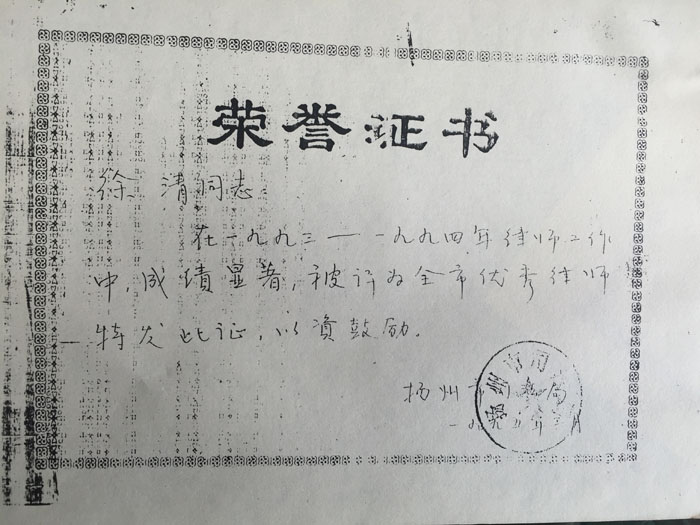 荣誉证书
徐 清同志:
在一九九三——一九九四年律师工作
中,成绩显著,被评为全市优秀律师
特发此证,以资鼓励.
扬州市司法局